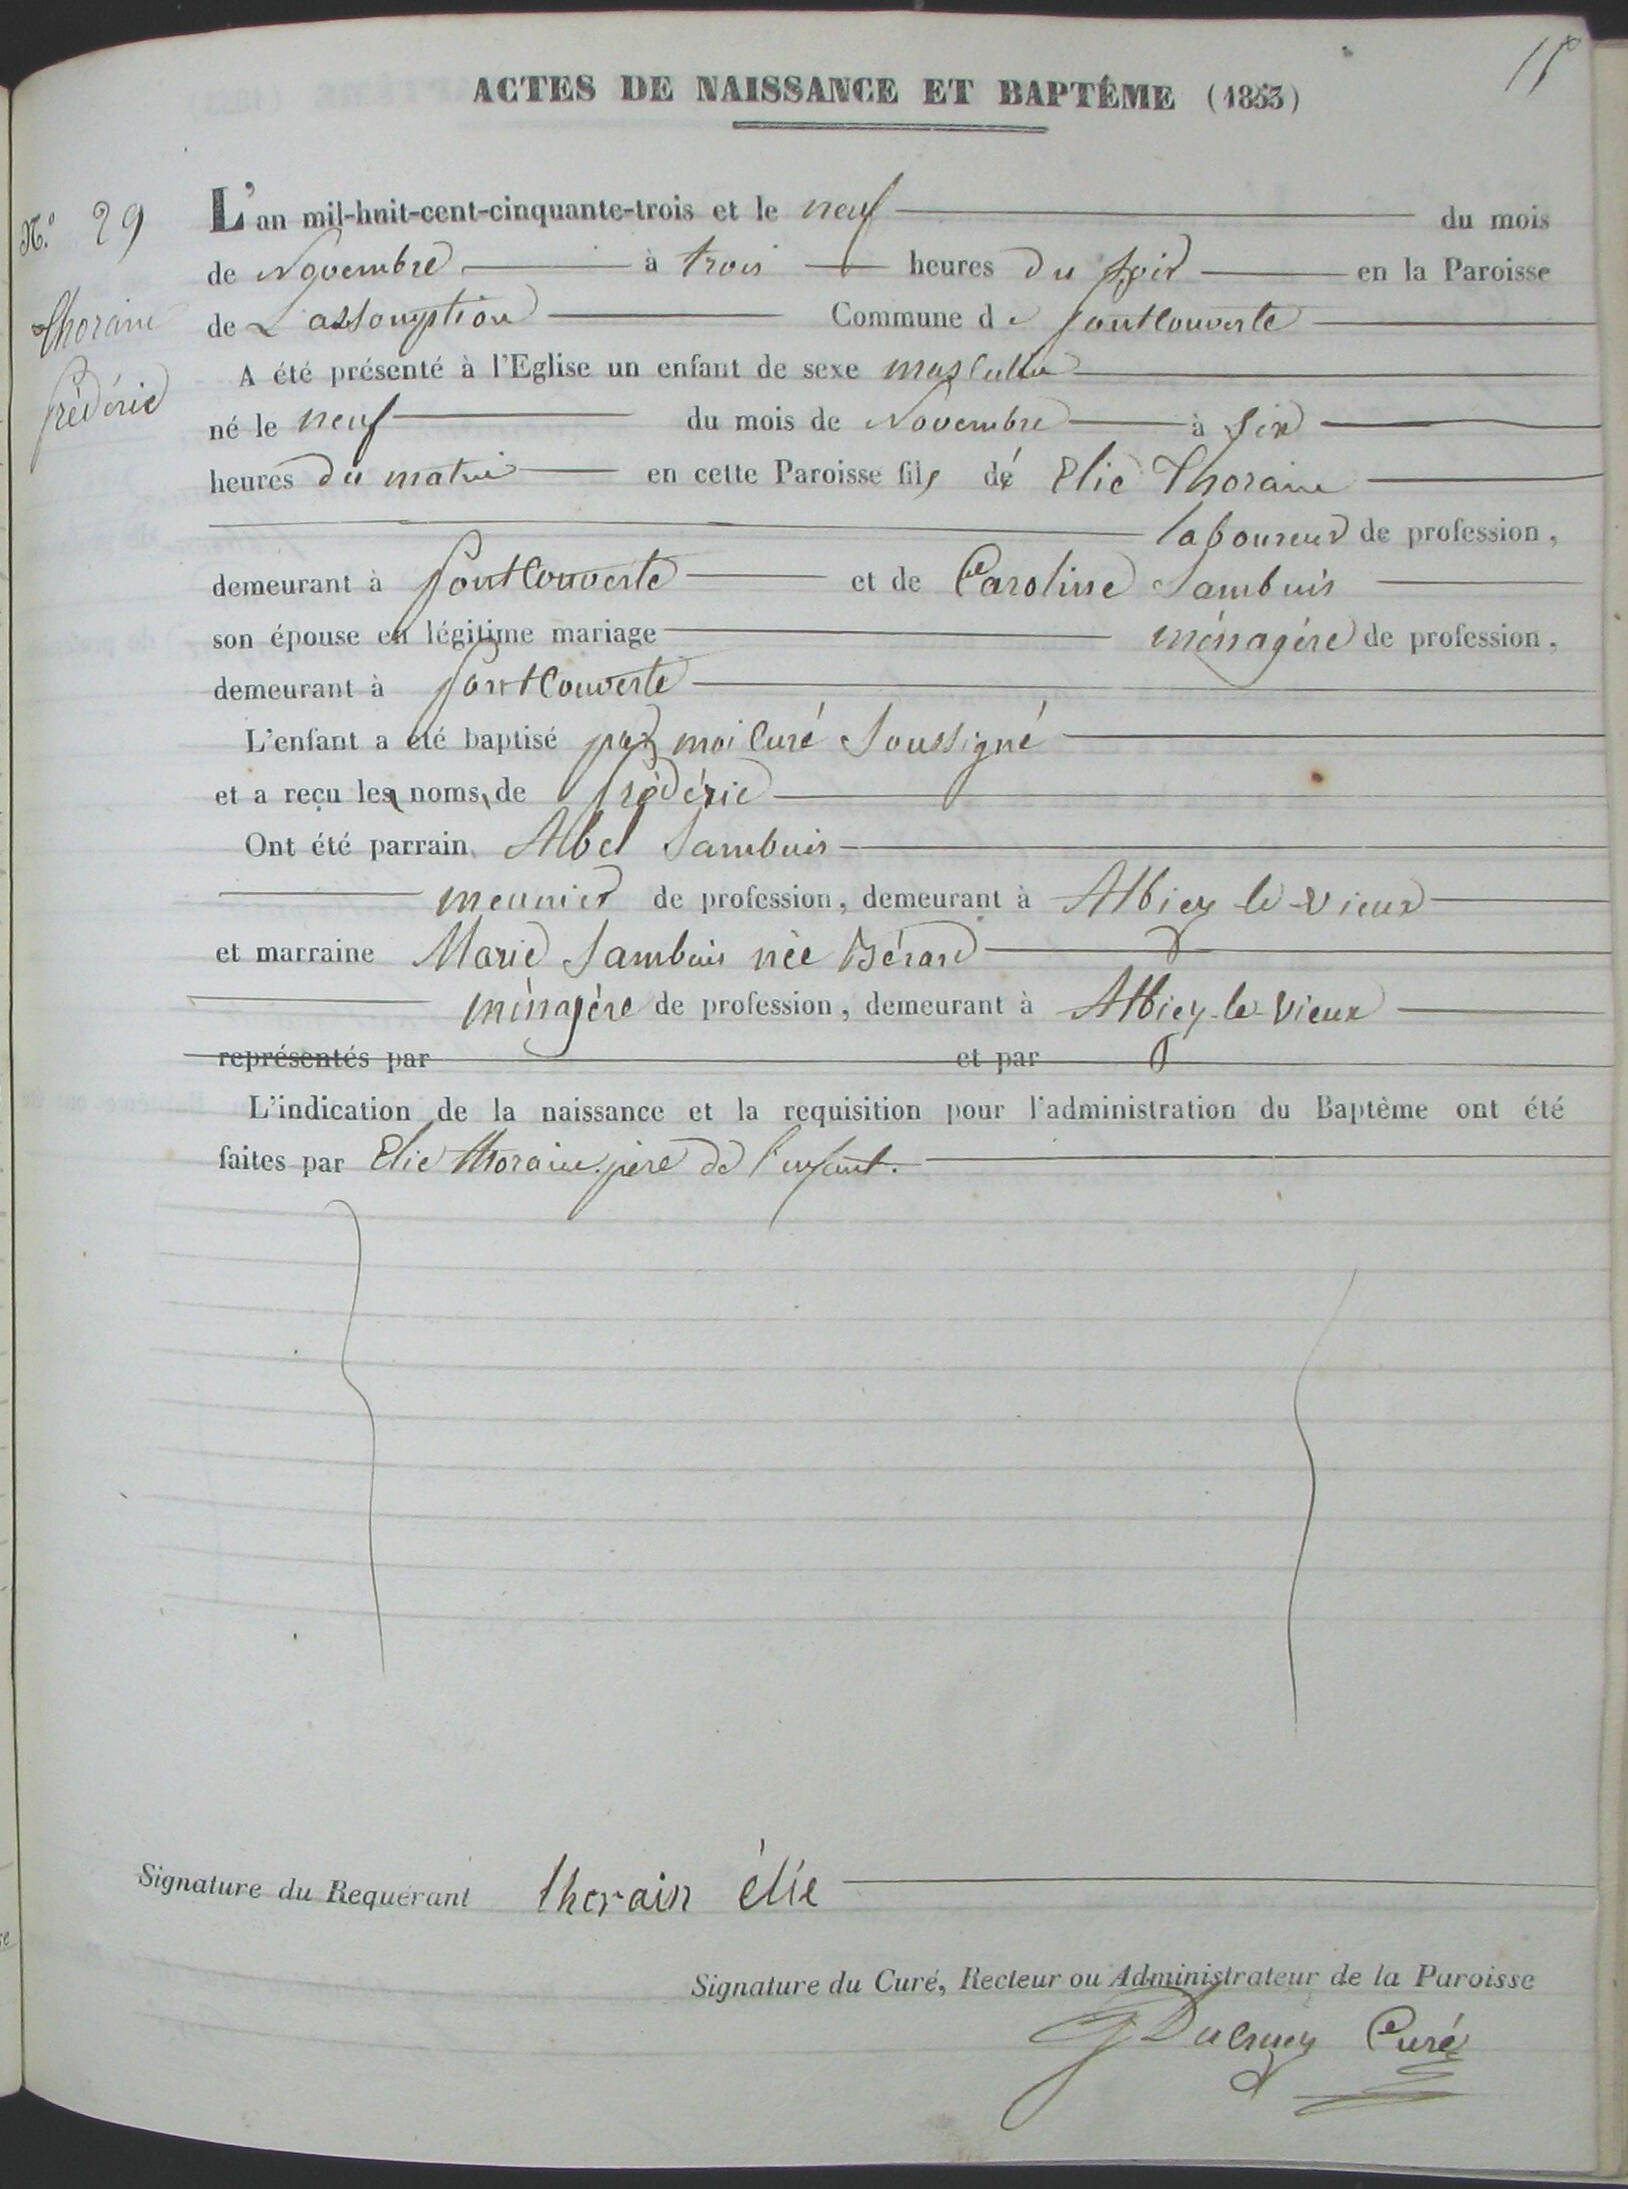 ACTES DE NAISSANCE ET BAPTÊME (1853)
N.º 29
Thorain
frédéric
L'an mil-huit-cent-cinquante-trois et le neuf du mois
de Novembre à trois heures du soir en la Paroisse
de L'assomption Commune de fontCouverte
A été présenté à l'Eglise un enfant de sexe masculin
né le neuf du mois de Novembre à six
heures du matin en cette Paroisse fils de Elie Thorain
laboureur de profession,
demeurant à fontCouverte et de Caroline Sambuis
son épouse en légitime mariage ménagére de profession,
demeurant à fontCouverte
L'enfant a été baptisé par moi Curé Soussigné
et a reçu les noms de frédéric
Ont été parrain Abel Sambuis
meunier de profession, demeurant à Albiey-le-vieux
et marraine Marie Sambuis née Bérard
ménagére de profession, demeurant à Albiey-le-vieux
représentés par et par
L'indication de la naissance et la requisition pour l'administration du Baptême ont été
faites par Elie thorain père de l'enfant.
Signature du Requérant thorain élie
Signature du Curé, Recteur ou Administrateur de la Paroisse
Curé